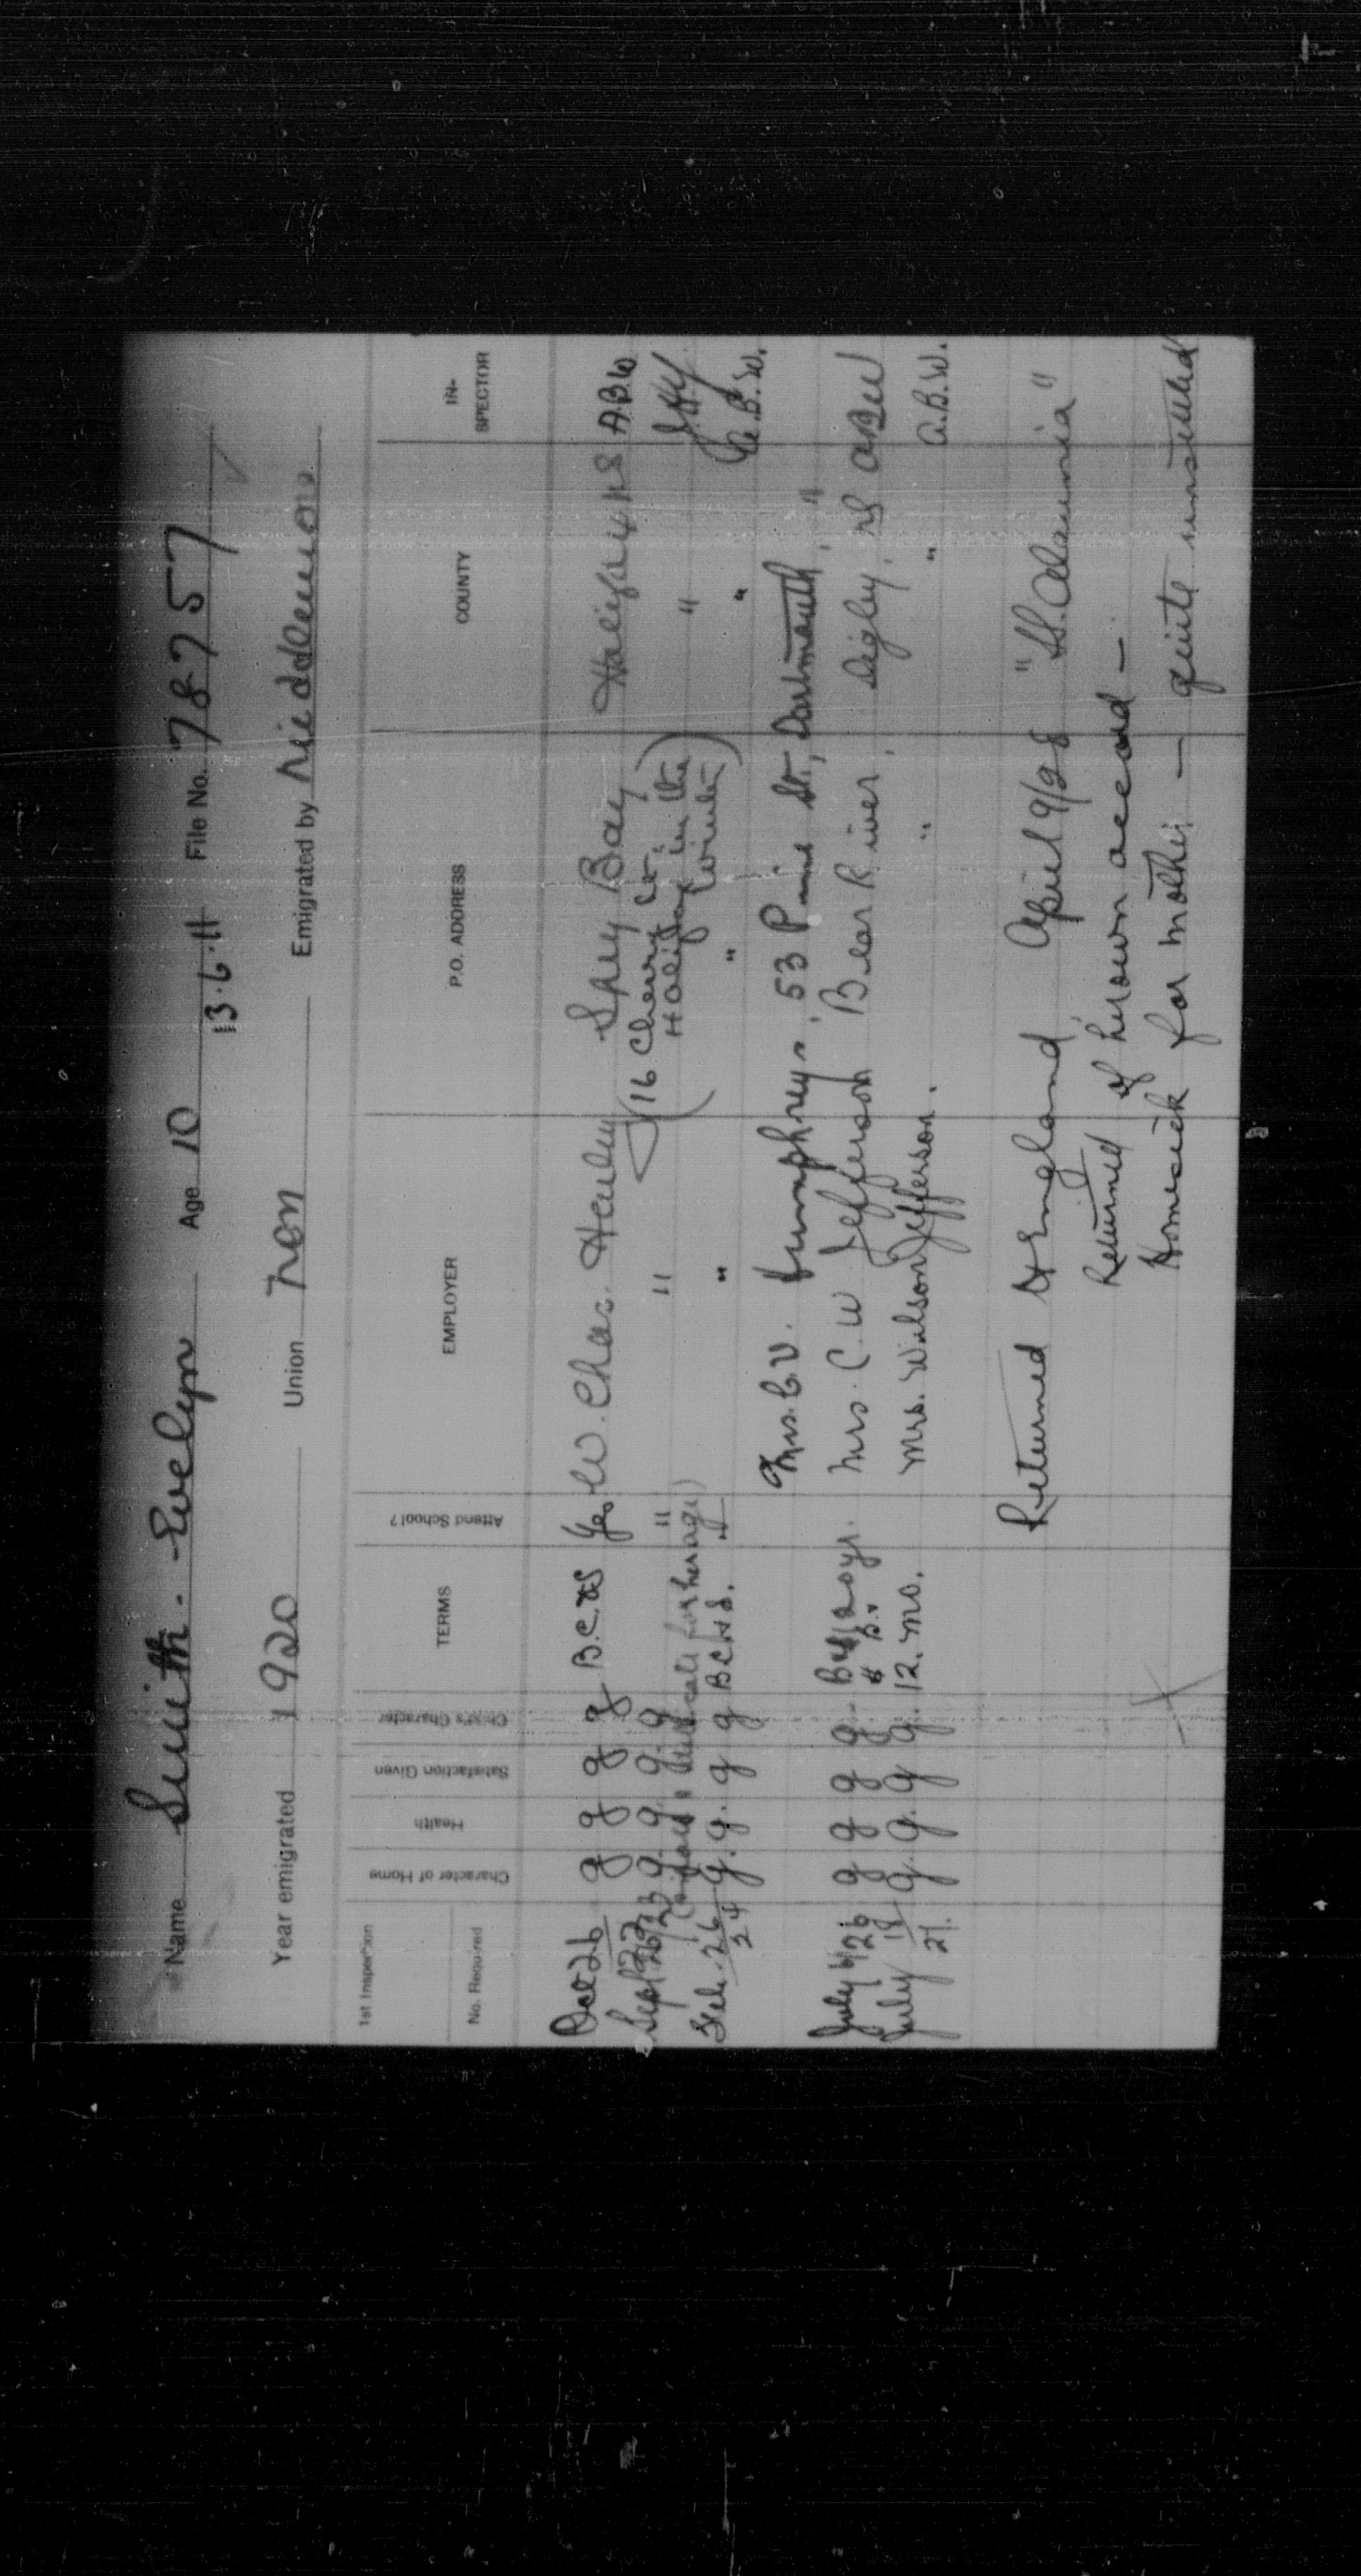 Name Smith - Evelyn Age 10 File No. 78757
13.6.11
Year emigrated 1920 Union non Emigrated by Middlemore
1st Inspection
No. Required
Character of Home
Health
Satisfaction Given
Child's Character
TERMS
Attend School?
EMPLOYER
P.O. ADDRESS
COUNTY
IN-
SPECTOR
Oct 26 g g g g B.C.&S Yes W. Chas. Henley Spry Bay Halifax N S A.B.W
(16 Cherry St.
Halifax in the
winter)
g. g. g. g " " "
for her age)
Feb. 26 24 g. g. g g B C & S. " " " " A.B.W.
Mrs. C.V. Humphreys, 53 Pine St., Dartmouth, "
July 26 g g g g Mrs. C. W Jefferson Bear River, Digby, N S ABW
July 18 27. g. g. g g. 12. mo. Mrs. Wilson Jefferson. " " A.B.W.
Returned to England April 9/28 "SS. Alaunia"
Returned of her own accord -
Homesick for mother - quite unsettled